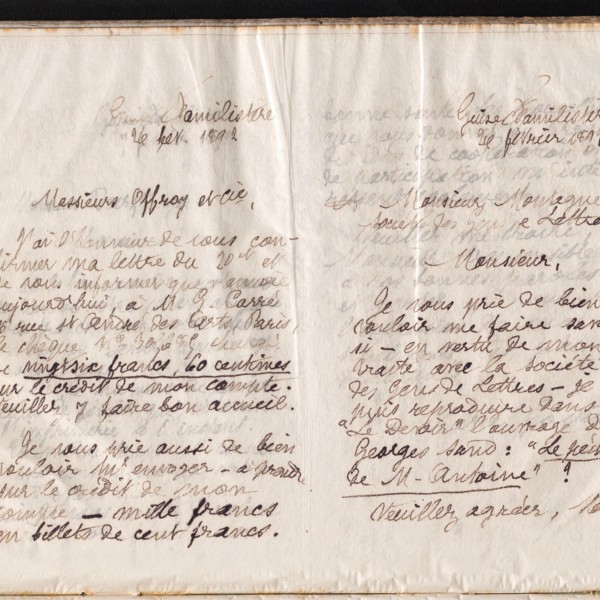 Guise Familistère
26 fév. 1892
Messieurs Offroy et Cie,
J'ai l'honneur de vous con-
firmer ma lettre du 20 ct et
de vous informer que j'envoie
aujourd'hui, à M. G. Carré
rue St André des Arts, Paris,
le chèque No
de vingt six francs, 60 centimes
sur le crédit de mon compte.
Veuillez y faire bon accueil.
Je vous prie aussi de bien
vouloir m'envoyer - à prendre
sur le crédit de mon
compte - mille francs
en billets de cent francs.
Guise Familistère
26 février 189
Monsieur Montagne
société des gens de Lettres
Monsieur,
Je vous prie de bien
vouloir me faire sav
si - en vertu de mon
traité avec la société
des Gens de Lettres - je
puis reproduire dans
"Le Devoir" l'ouvrage de
Georges Sand : "Le péch
de M. Antoine" ?
Veuillez agréer,